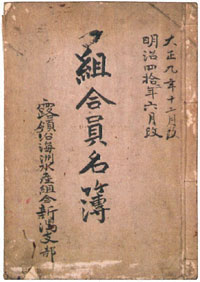 大正九年十二月改
明治四拾年六月改
組合員名簿
露領沿海州水産組合新潟支部